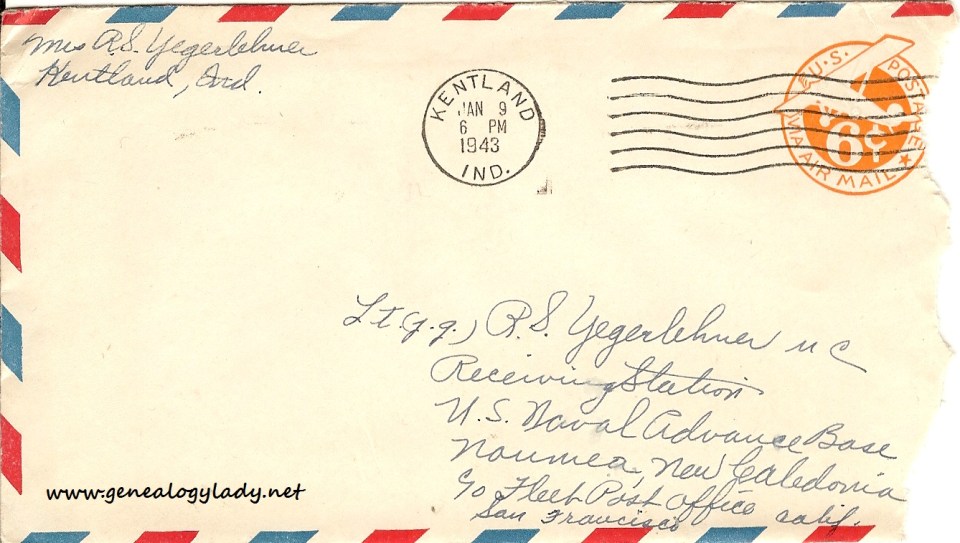 Mrs R.S. Yegerlehner
Kentland, Ind.
KENTLAND
JAN 9
6 PM
1943
IND.
U.S. POSTAGE
6¢
VIA AIR MAIL
Lt. (j.g.) R.S. Yegerlehner M C
Receiving Station
U.S. Naval Advance Base
Noumea, New Caledonia
c/o Fleet Post Office
San Francisco Calif.
www.genealogylady.net